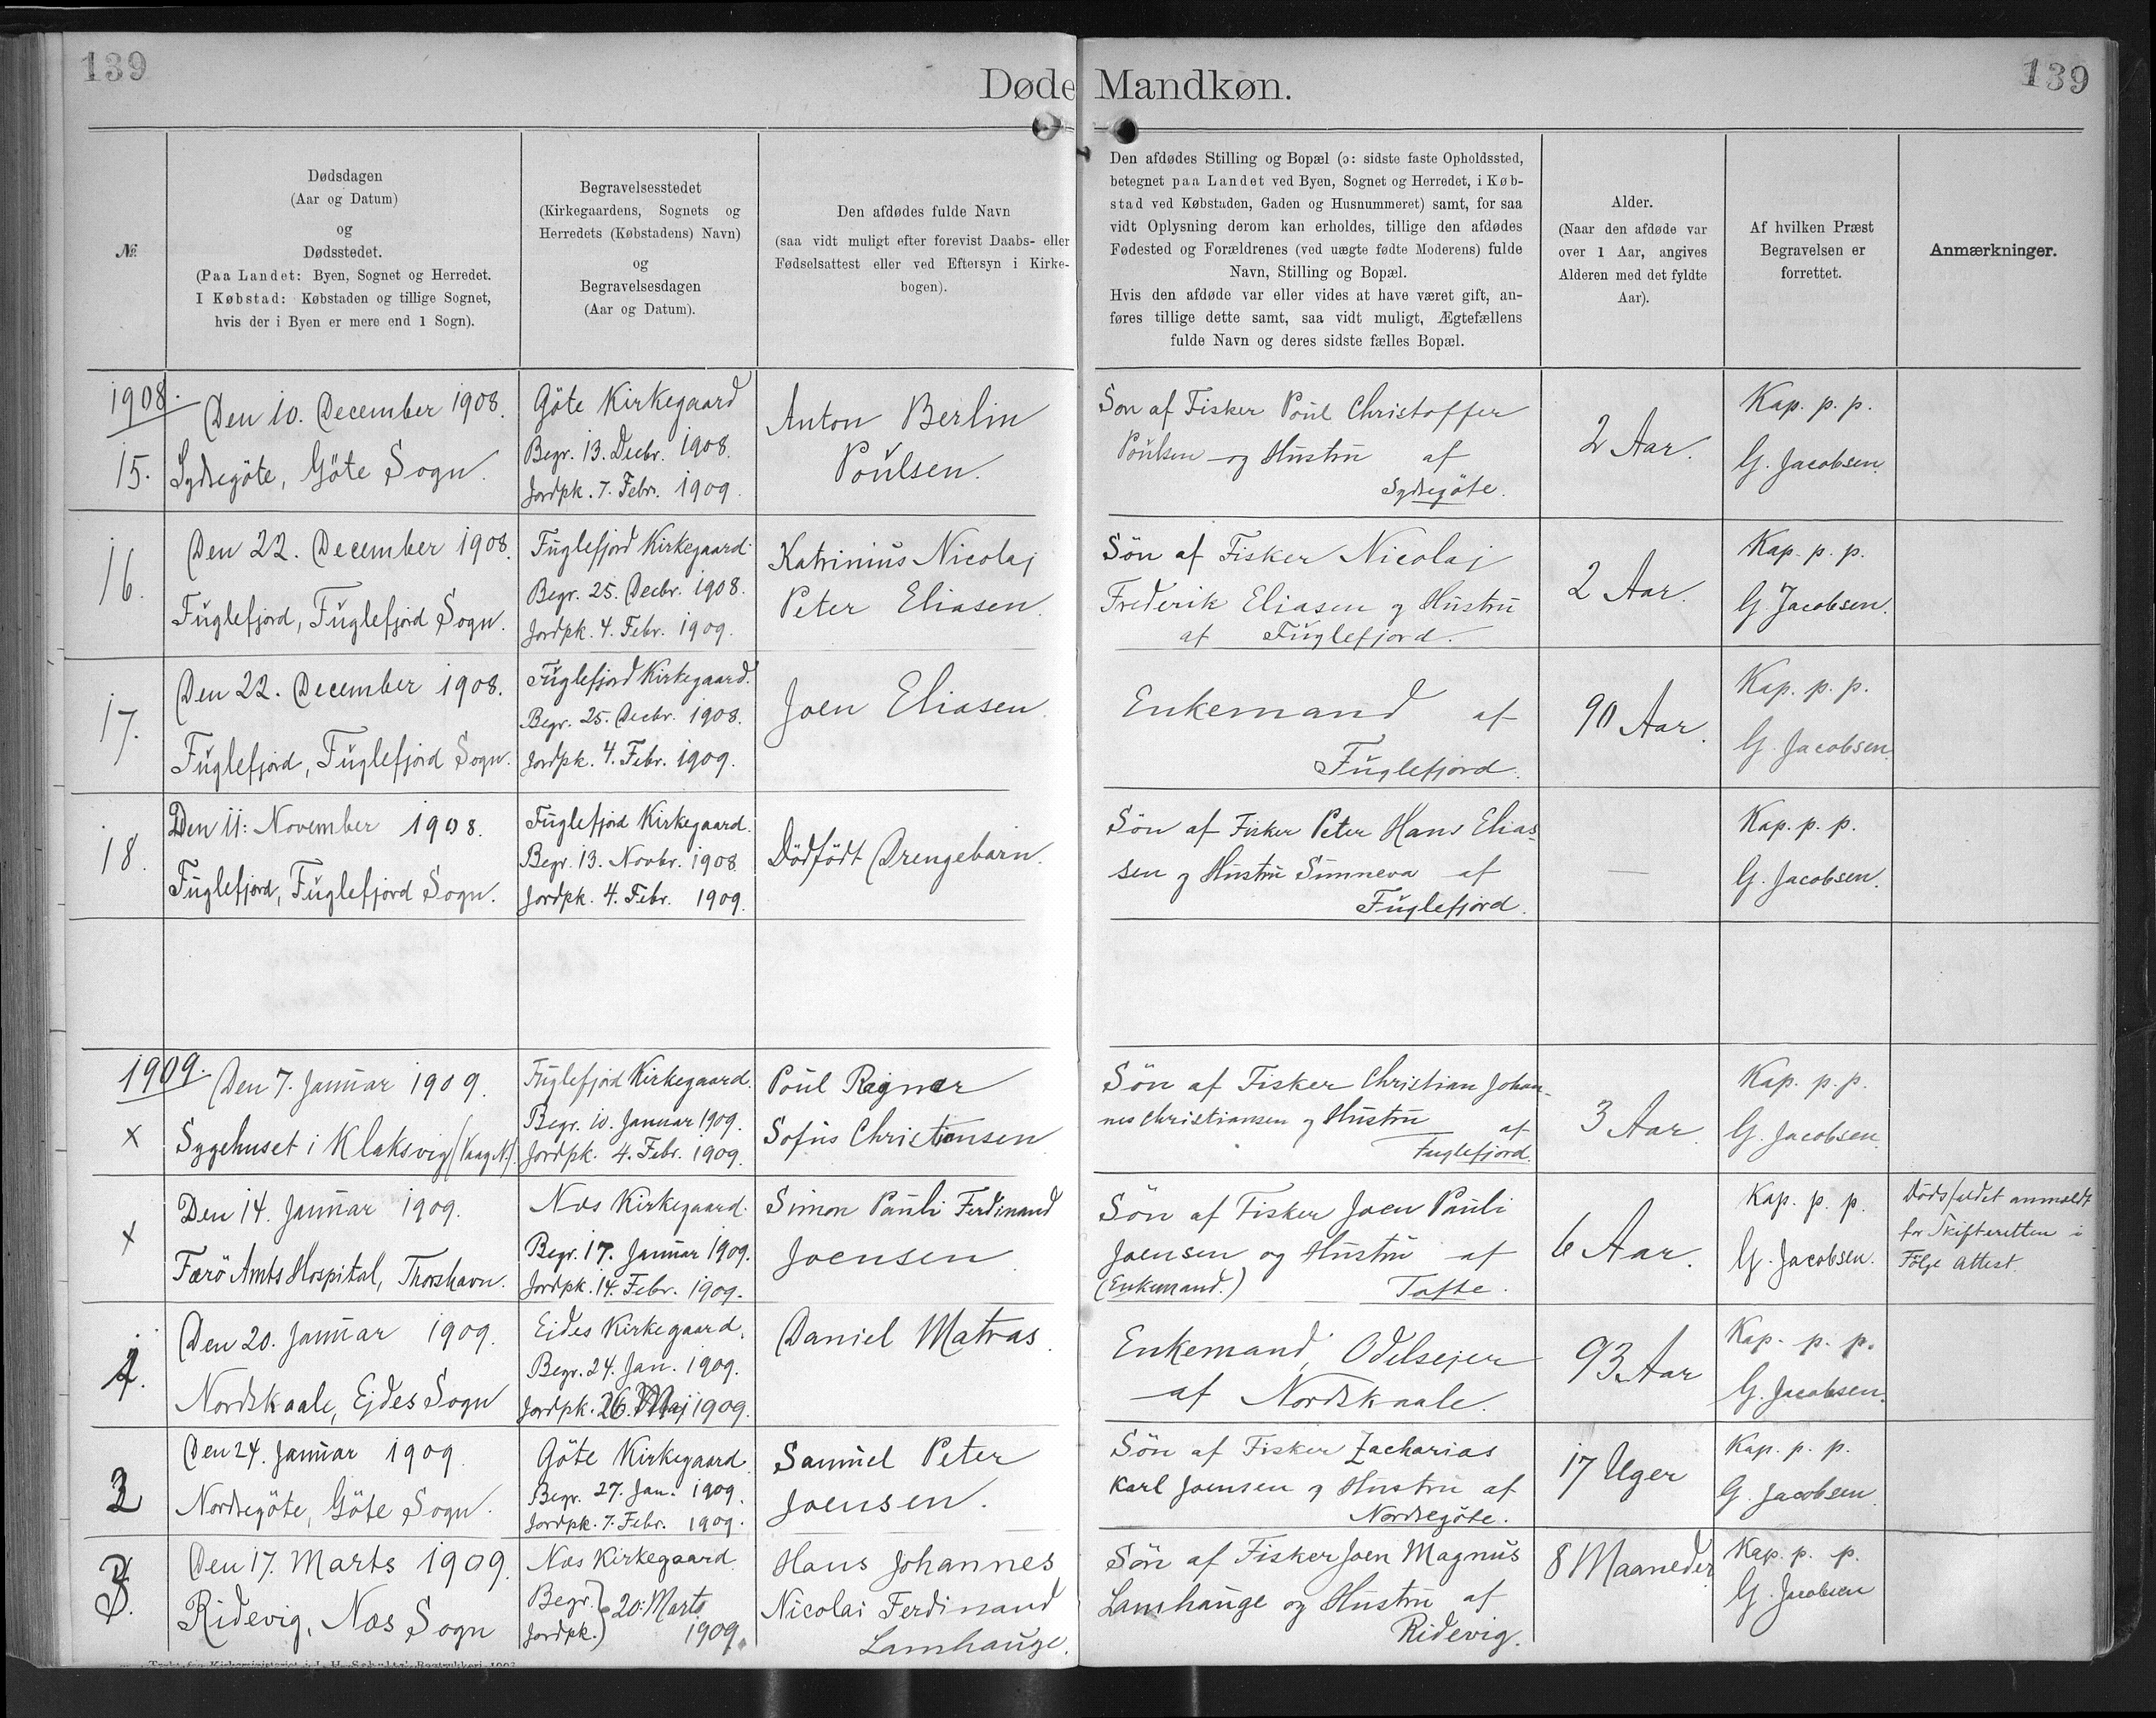 139
Døde Mandkøn.
139
№
Dødsdagen
(Aar og Datum)
og
Dødsstedet.
(Paa Landet: Byen, Sognet og Herredet.
I Købstad: Købstaden og tillige Sognet,
hvis der i Byen er mere end 1 Sogn).
Begravelsesstedet
(Kirkegaardens, Sognets og
Herredets (Købstadens) Navn)
og
Begravelsesdagen
(Aar og Datum).
Den afdødes fulde Navn
(saa vidt muligt efter forevist Daabs- eller
Fødselsattest eller ved Eftersyn i Kirke-
bogen).
Den afdødes Stilling og Bopæl (ɔ: sidste faste Opholdssted,
betegnet paa Landet ved Byen, Sognet og Herredet, i Køb-
stad ved Købstaden, Gaden og Husnummeret) samt, for saa
vidt Oplysning derom kan erholdes, tillige den afdødes
Fødested og Forældrenes (ved uægte fødte Moderens) fulde
Navn, Stilling og Bopæl.
Hvis den afdøde var eller vides at have været gift, an-
føres tillige dette samt, saa vidt muligt, Ægtefællens
fulde Navn og deres sidste fælles Bopæl.
Alder.
(Naar den afdøde var
over 1 Aar, angives
Alderen med det fyldte
Aar).
Af hvilken Præst
Begravelsen er
forrettet.
Anmærkninger.
1908.
15.
Den 10. December 1908.
Sydregöte, Göte Sogn.
Göte Kirkegaard
Begr. 13. Decbr. 1908.
Jordpk. 7. Febr. 1909.
Anton Berlin
Poulsen.
Søn af Fisker Poul Christoffer
Poulsen og Hustru af
Sydregöte.
2 Aar.
Kap. p. p.
G. Jacobsen.
16.
Den 22. December 1908.
Fuglefjord, Fuglefjord Sogn.
Fuglefjord Kirkegaard.
Begr. 25. Decbr. 1908.
Jordpk. 4. Febr. 1909.
Katrinius Nicolaj
Peter Eliasen.
Sön af Fisker Nicolaj
Frederik Eliasen og Hustru
af Fuglefjord.
2 Aar.
Kap. p. p.
G. Jacobsen.
17.
Den 22. December 1908.
Fuglefjord, Fuglefjord Sogn.
Fuglefjord Kirkegaard.
Begr. 25. Decbr. 1908.
Jordpk. 4. Febr. 1909.
Joen Eliasen.
Enkemand af
Fuglefjord.
90 Aar.
Kap. p. p.
G. Jacobsen.
18.
Den 11. November 1908.
Fuglefjord, Fuglefjord Sogn.
Fuglefjord Kirkegaard.
Begr. 13. Novbr. 1908.
Jordpk. 4. Febr. 1909.
Dödfödt Drengebarn.
Sön af Fisker Peter Hans Elias-
sen og Hustru Sunneva af
Fuglefjord.
—
Kap. p. p.
G. Jacobsen.
1909.
x
Den 7. Januar 1909.
Sygehuset i Klaksvig (Vaag N.).
Fuglefjord Kirkegaard.
Begr. 10. Januar 1909.
Jordpk. 4. Febr. 1909.
Poul Ragnar
Sofus Christiansen
Sön af Fisker Christian Johan-
nes Christiansen og Hustru af
Fuglefjord.
3 Aar.
Kap. p. p.
G. Jacobsen.
x
Den 14. Januar 1909.
Færö Amts Hospital, Thorshavn.
Næs Kirkegaard.
Begr. 17. Januar 1909.
Jordpk. 14. Febr. 1909.
Simon Pauli Ferdinand
Joensen.
Sön af Fisker Joen Pauli
Joensen og Hustru af
(Enkemand.) Tofte.
6 Aar.
Kap. p. p.
G. Jacobsen.
Dödsfaldet anmeldt
for Skifteretten i
Fölge Attest.
1.
Den 20. Januar 1909.
Nordskaale, Ejdes Sogn
Eides Kirkegaard.
Begr. 24. Jan. 1909.
Jordpk. 26. Maj 1909.
Daniel Matras.
Enkemand, Odelsejer
af Nordskaale.
93 Aar
Kap. p. p.
G. Jacobsen.
2
Den 24. Januar 1909.
Nordregöte, Göte Sogn.
Göte Kirkegaard.
Begr. 27. Jan. 1909.
Jordpk. 7. Febr. 1909.
Samuel Peter
Joensen.
Sön af Fisker Zacharias
Karl Joensen og Hustru af
Nordregöte.
17 Uger
Kap. p. p.
G. Jacobsen.
3.
Den 17. Marts 1909.
Ridevig, Næs Sogn
Næs Kirkegaard.
Begr. } 20. Marts
Jordpk. } 1909.
Hans Johannes
Nicolai Ferdinand
Lamhauge.
Sön af Fisker Joen Magnus
Lamhauge og Hustru af
Ridevig.
8 Maaneder
Kap. p. p.
G. Jacobsen